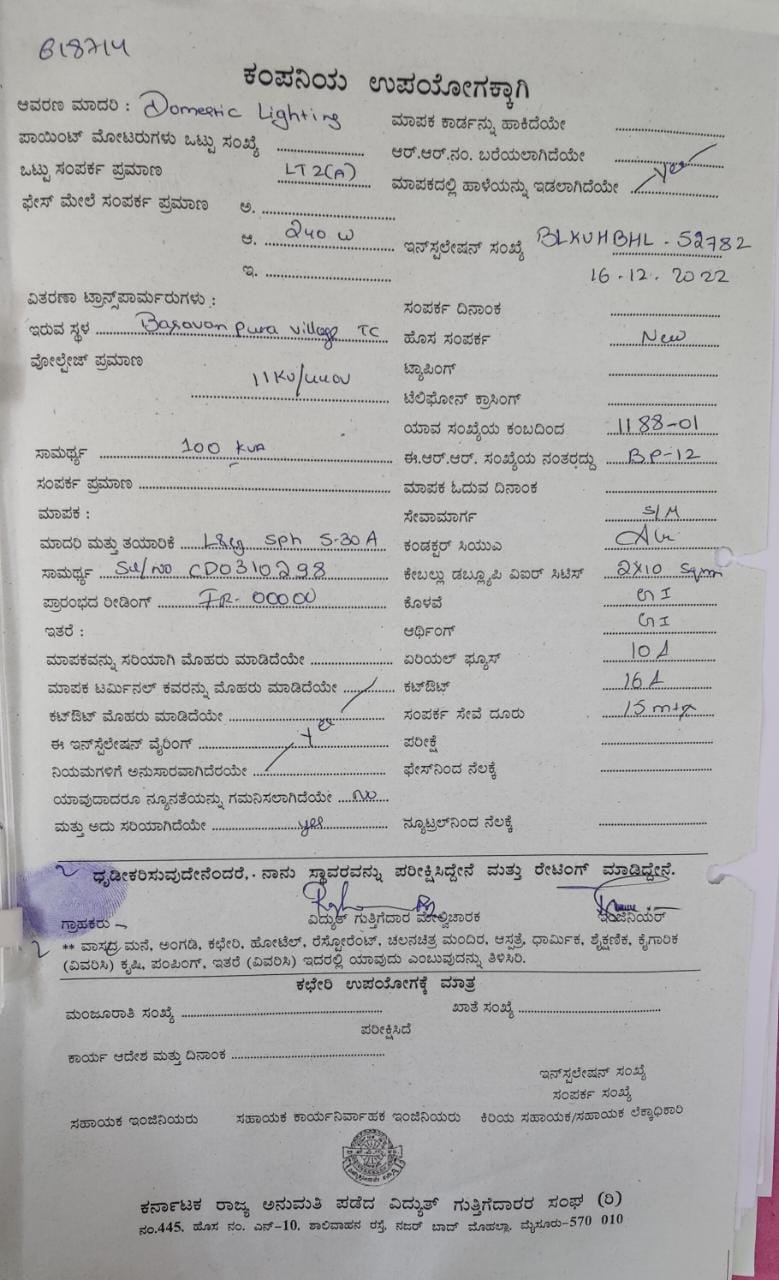 618714
ಕಂಪನಿಯ ಉಪಯೋಗಕ್ಕಾಗಿ
ಆವರಣ ಮಾದರಿ : Domestic Lighting
ಮಾಪಕ ಕಾರ್ಡನ್ನು ಹಾಕಿದೆಯೇ
ಪಾಯಿಂಟ್ ಮೋಟರುಗಳು ಒಟ್ಟು ಸಂಖ್ಯೆ
ಆರ್.ಆರ್.ನಂ. ಬರೆಯಲಾಗಿದೆಯೇ
ಒಟ್ಟು ಸಂಪರ್ಕ ಪ್ರಮಾಣ LT2(A)
ಮಾಪಕದಲ್ಲಿ ಹಾಳೆಯನ್ನು ಇಡಲಾಗಿದೆಯೇ yes
ಫೇಸ್ ಮೇಲೆ ಸಂಪರ್ಕ ಪ್ರಮಾಣ ಅ.
ಆ. 240 W
ಇನ್‌ಸ್ಪಲೇಷನ್ ಸಂಖ್ಯೆ BLKUHBHL - 52782
ಇ.
16-12-2022
ವಿತರಣಾ ಟ್ರಾನ್ಸ್‌ಪಾರ್ಮರುಗಳು :
ಸಂಪರ್ಕ ದಿನಾಂಕ
ಇರುವ ಸ್ಥಳ Basavanpura village TC
ಹೊಸ ಸಂಪರ್ಕ New
ವೋಲ್ಟೇಜ್ ಪ್ರಮಾಣ
11KV/440V
ಟ್ಯಾಪಿಂಗ್
ಟೆಲಿಫೋನ್ ಕ್ರಾಸಿಂಗ್
ಯಾವ ಸಂಖ್ಯೆಯ ಕಂಬದಿಂದ 1188-01
ಸಾಮರ್ಥ್ಯ 100 KVA
ಈ.ಆರ್.ಆರ್. ಸಂಖ್ಯೆಯ ನಂತರದ್ದು BP-12
ಸಂಪರ್ಕ ಪ್ರಮಾಣ
ಮಾಪಕ ಓದುವ ದಿನಾಂಕ
ಮಾಪಕ :
ಸೇವಾಮಾರ್ಗ S/M
ಮಾದರಿ ಮತ್ತು ತಯಾರಿಕೆ L&g Sph 5-30A
ಕಂಡಕ್ಟರ್ ಸಿಯುಎ
ಸಾಮರ್ಥ್ಯ Sl/No CD0310298
ಕೇಬಲ್ಲು ಡಬ್ಲ್ಯೂಪಿ ವಿಐರ್ ಸಿಟಿಸ್ 2X10 Sqmm
ಪ್ರಾರಂಭದ ರೀಡಿಂಗ್ IR- 00000
ಕೊಳವೆ GI
ಇತರೆ :
ಆರ್ಥಿಂಗ್ GI
ಮಾಪಕವನ್ನು ಸರಿಯಾಗಿ ಮೊಹರು ಮಾಡಿದೆಯೇ
ಏರಿಯಲ್ ಫ್ಯೂಸ್ 10 A
ಮಾಪಕ ಟರ್ಮಿನಲ್ ಕವರನ್ನು ಮೊಹರು ಮಾಡಿದೆಯೇ
ಕಟ್‌ಔಟ್ 16 A
ಕಟ್‌ಔಟ್ ಮೊಹರು ಮಾಡಿದೆಯೇ yes
ಸಂಪರ್ಕ ಸೇವೆ ದೂರು 15 mtr
ಈ ಇನ್‌ಸ್ಟಲೇಷನ್ ವೈರಿಂಗ್
ಪರೀಕ್ಷೆ
ನಿಯಮಗಳಿಗೆ ಅನುಸಾರವಾಗಿದೆರಯೇ
ಫೇಸ್‌ನಿಂದ ನೆಲಕ್ಕೆ
ಯಾವುದಾದರೂ ನ್ಯೂನತೆಯನ್ನು ಗಮನಿಸಲಾಗಿದೆಯೇ No
ಮತ್ತು ಅದು ಸರಿಯಾಗಿದೆಯೇ yes
ನ್ಯೂಟ್ರಲ್‌ನಿಂದ ನೆಲಕ್ಕೆ
ಧೃಡೀಕರಿಸುವುದೇನೆಂದರೆ, ನಾನು ಸ್ಥಾವರವನ್ನು ಪರೀಕ್ಷಿಸಿದ್ದೇನೆ ಮತ್ತು ರೇಟಿಂಗ್ ಮಾಡಿದ್ದೇನೆ.
ಗ್ರಾಹಕರು
ವಿದ್ಯುತ್ ಗುತ್ತಿಗೆದಾರ ಮೇಲ್ವಿಚಾರಕ
ಇಂಜಿನಿಯರ್
** ವಾಸದ್ರ ಮನೆ, ಅಂಗಡಿ, ಕಛೇರಿ, ಹೋಟೆಲ್, ರೆಸ್ಟೋರೆಂಟ್, ಚಲನಚಿತ್ರ ಮಂದಿರ, ಆಸ್ಪತ್ರೆ, ಧಾರ್ಮಿಕ, ಶೈಕ್ಷಣಿಕ, ಕೈಗಾರಿಕ
(ವಿವರಿಸಿ) ಕೃಷಿ, ಪಂಪಿಂಗ್, ಇತರೆ (ವಿವರಿಸಿ) ಇದರಲ್ಲಿ ಯಾವುದು ಎಂಬುವುದನ್ನು ತಿಳಿಸಿರಿ.
ಕಛೇರಿ ಉಪಯೋಗಕ್ಕೆ ಮಾತ್ರ
ಮಂಜೂರಾತಿ ಸಂಖ್ಯೆ
ಖಾತೆ ಸಂಖ್ಯೆ
ಪರೀಕ್ಷಿಸಿದೆ
ಕಾರ್ಯ ಆದೇಶ ಮತ್ತು ದಿನಾಂಕ
ಇನ್‌ಸ್ಪಲೇಷನ್ ಸಂಖ್ಯೆ
ಸಂಪರ್ಕ ಸಂಖ್ಯೆ
ಸಹಾಯಕ ಇಂಜಿನಿಯರು
ಸಹಾಯಕ ಕಾರ್ಯನಿರ್ವಾಹಕ ಇಂಜಿನಿಯರು
ಕಿರಿಯ ಸಹಾಯಕ/ಸಹಾಯಕ ಲೆಕ್ಕಾಧಿಕಾರಿ
ಕರ್ನಾಟಕ ರಾಜ್ಯ ಅನುಮತಿ ಪಡೆದ ವಿದ್ಯುತ್ ಗುತ್ತಿಗೆದಾರರ ಸಂಘ (ರಿ)
ನಂ.445, ಹೊಸ ನಂ. ಎನ್-10, ಶಾಲಿವಾಹನ ರಸ್ತೆ, ನಜರ್ ಬಾದ್ ಮೊಹಲ್ಲಾ, ಮೈಸೂರು-570 010